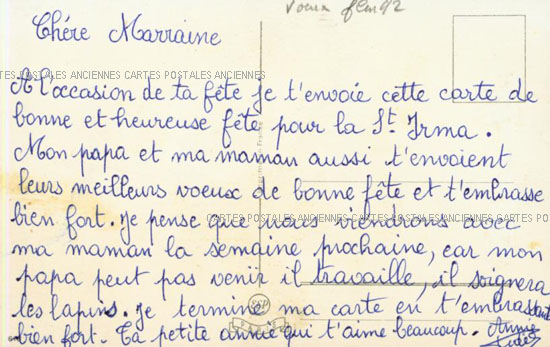 Voeux
Chére Marraine
CARTES POSTALES ANCIENNES CARTES POSTALES ANCIENNES
A l'occasion de ta fête je t'envoie cette carte de
bonne et heureuse fête pour la St Irma.
Mon papa et ma maman aussi t'envoient
leurs meilleurs voeux de bonne fête et t'embrasse
bien fort. je pense que nous viendrons avec
CARTES POSTALES ANCIENNES CARTES POSTALES ANCIENNES CARTES POST
ma maman la semaine prochaine, car mon
papa peut pas venir il travaille, il soignera
les lapins. je termine ma carte en t'embrassant
bien fort. Ta petite annie qui t'aime beaucoup. Annie